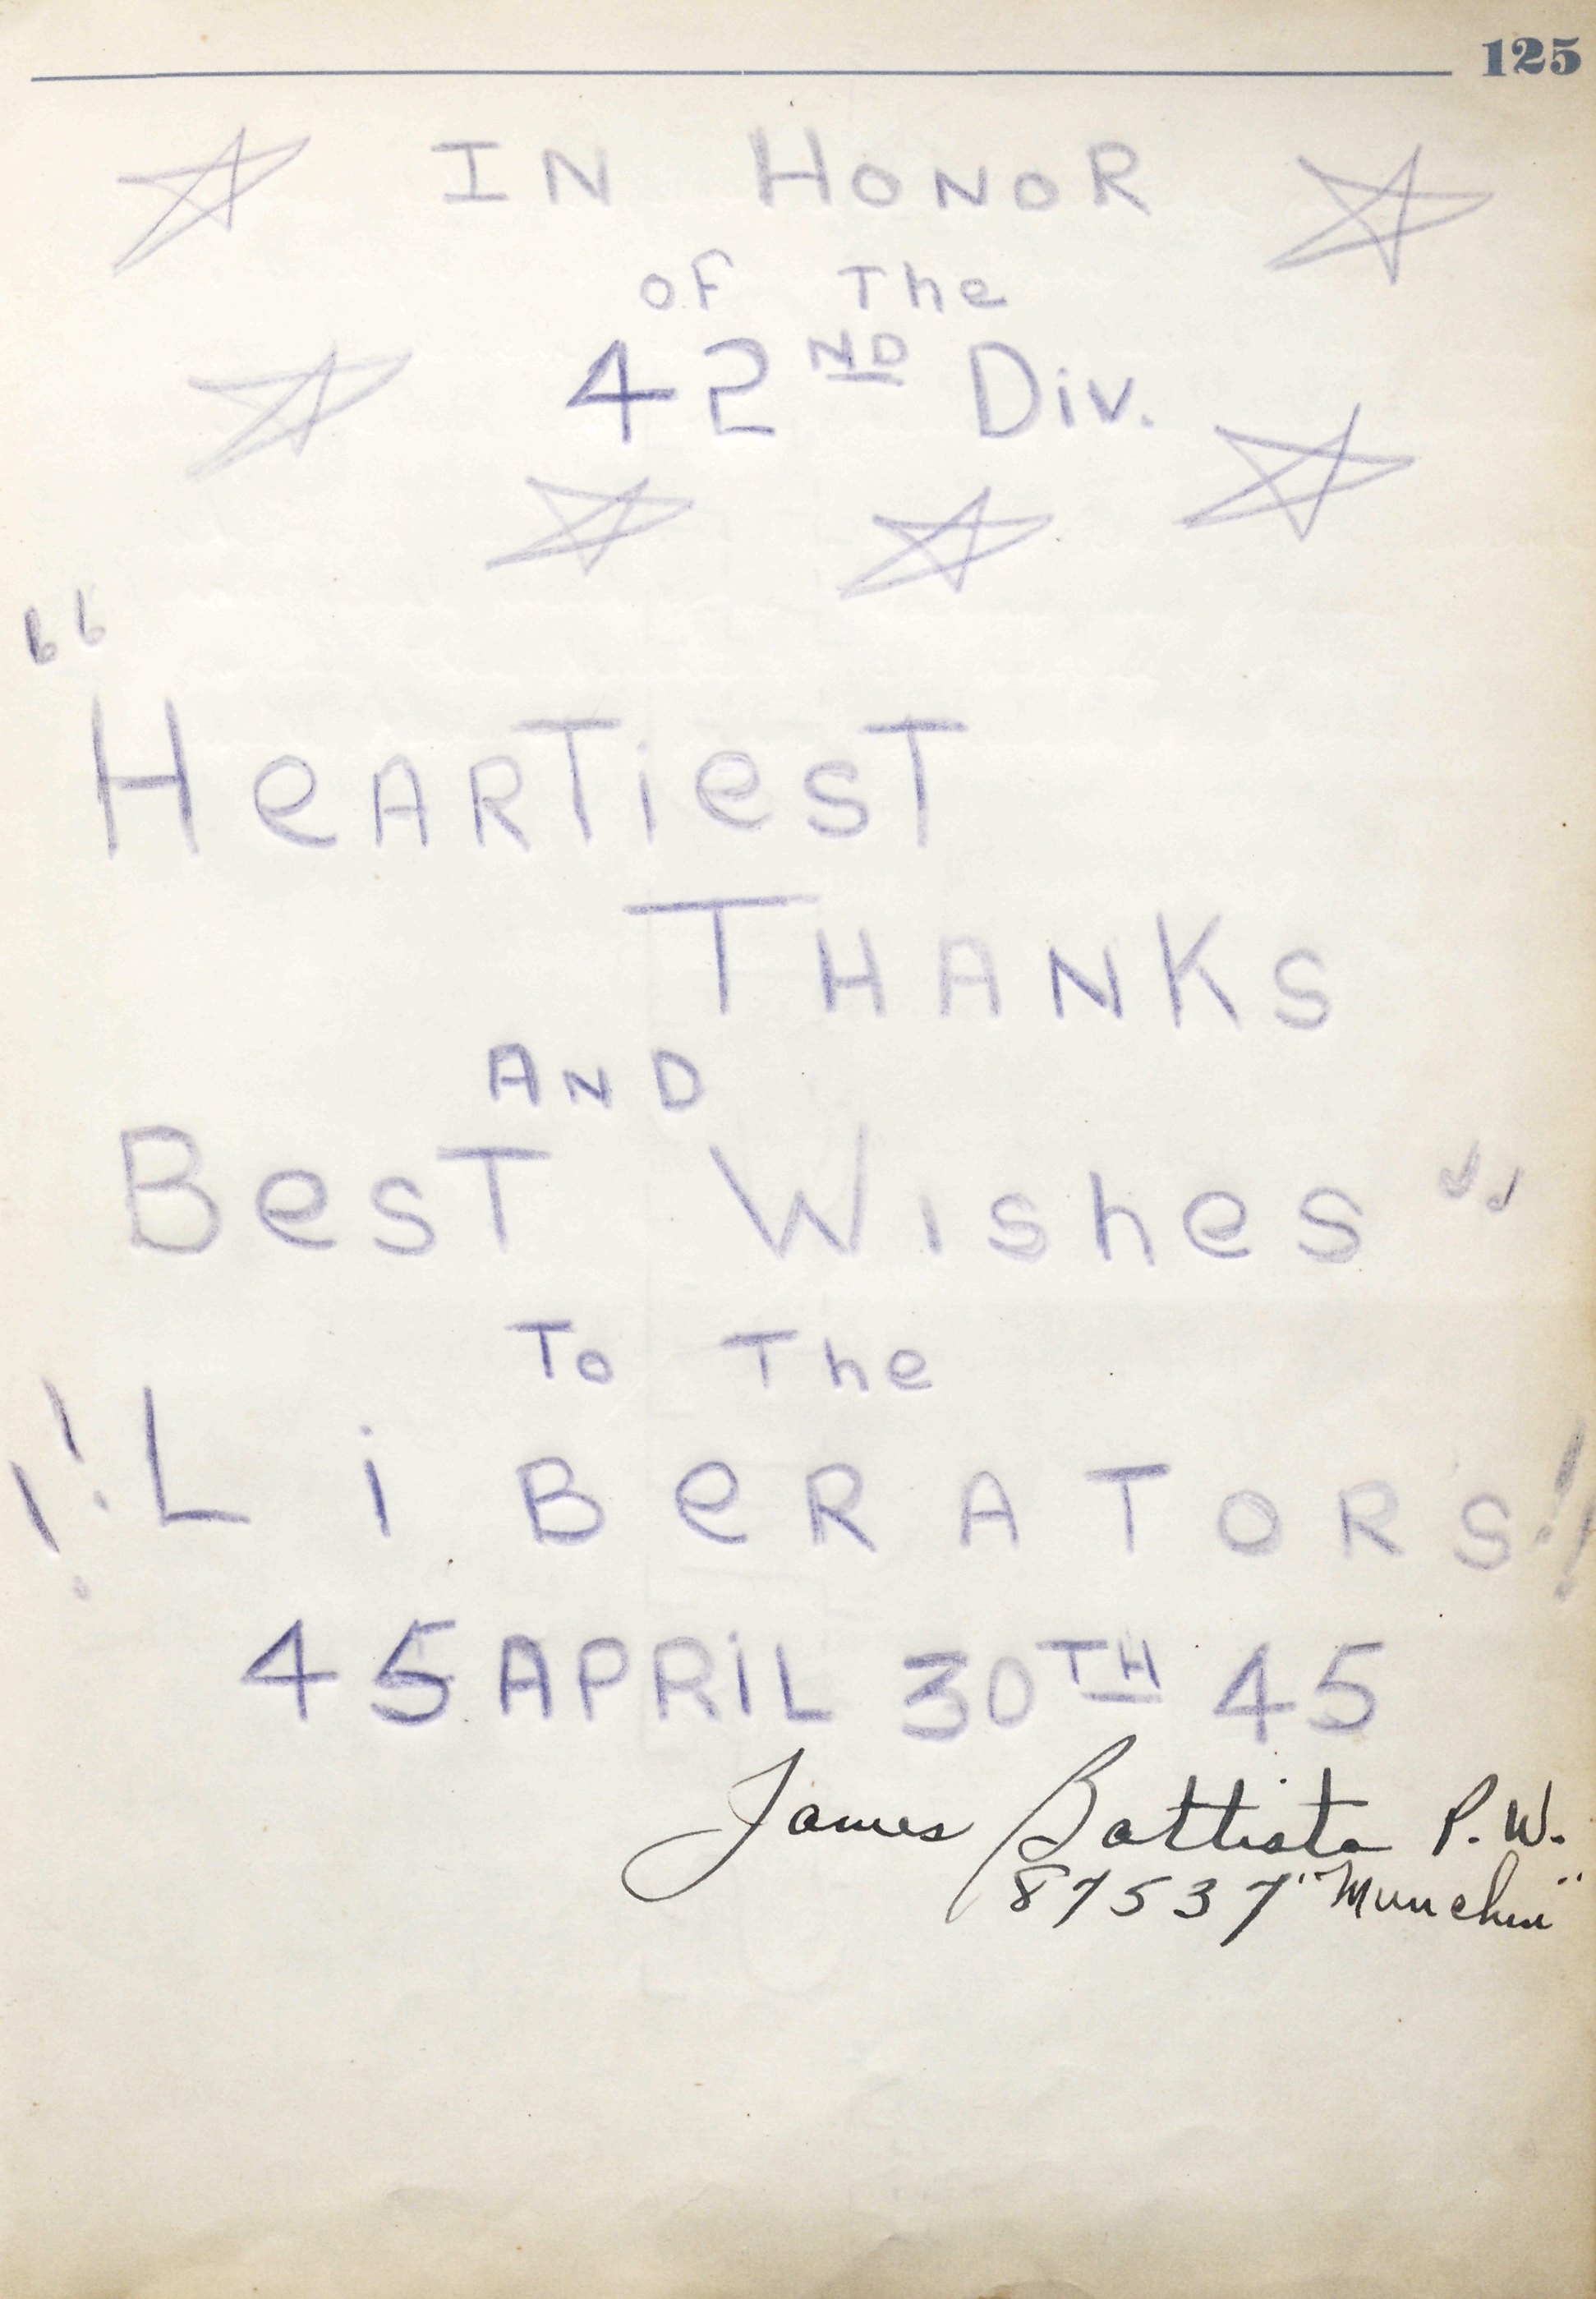 125
IN HONOR
OF The
42ND Div.
"
HeARTiesT
THANKS
AND
BesT Wishes "
To The
!!LiBeRATORS!!
45 APRiL 30TH 45
James Battista P.W.
87537 "Munchen"